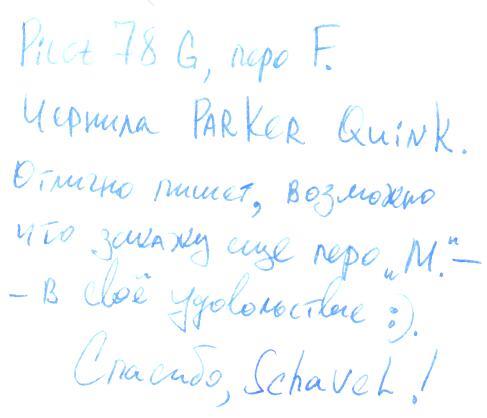 Pilot 78 G, перо F.
Чернила PARKER QUINK.
Отлично пишет, возможно
что закажу еще перо „М.“ –
– в своё удовольствие :).
Спасибо, Schavel!